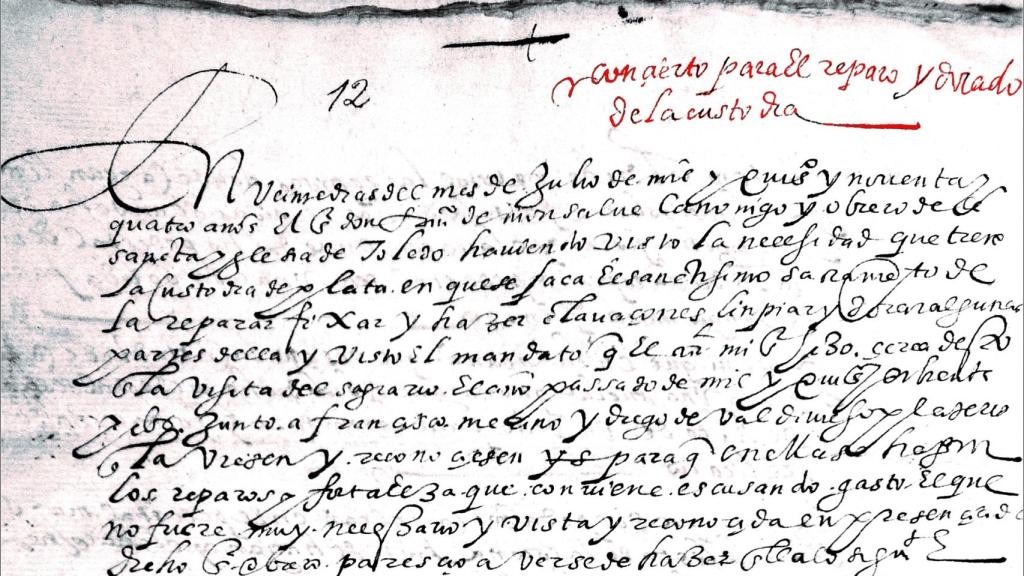 12
conçierto para El reparo y dorado
de la custodia
En Veinte dias del mes de Julio de mil y quis y noventa y
quatro años El S don de monsalve Canonigo y obrero de la
sancta yglesia de Toledo haviendo visto la necesidad que tiene
la custodia de plata en que se saca El sanctissimo sacramento de
la reparar fixar y hazer clavaçones linpiar y dorar algunas
partes della y visto El mandato q El mi S hizo çerca desto
En la visita del sagrario El año passado de mil y quis y ochenta
y ocho Junto a françisco merino y diego de valdivieso plateros
la viesen y reconoçiesen para q en ella se hagan
los reparos y fortaleza que conviene escusando gasto El que
no fuere muy neçessario y vista y reconoçida en presençia de
dicho S obrero paresçio averse de hazer En ella lo sigute